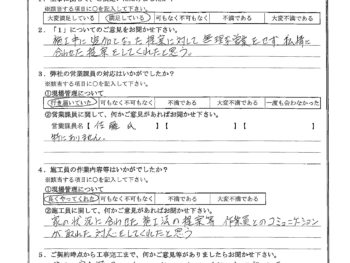 ※該当する項目に○を記入して下さい。
大変満足している 満足している 可もなく不可もなく 不満である 大変不満である
2. 「1」についてのご意見をお聞かせ下さい。
施工中に追加となった提案に対して無理な営業をせず私様に
合わせた提案をしてくれたと思う。
3. 弊社の営業課員の対応はいかがでしたか?
※該当する項目に○を記入して下さい。
①現場管理について
行き届いていた 可もなく不可もなく 不満である 大変不満である 一度も会わなかった
②営業課員に関して、何かご意見があればお聞かせ下さい。
営業課員名【 佐藤 氏 】 【 】
特にありません。
4. 施工員の作業内容等はいかがでしたか?
※該当する項目に○を記入して下さい。
①現場管理について
良くやってくれた 可もなく不可もなく 不満である 大変不満である
②施工員に関して、何かご意見があればお聞かせ下さい。
家の状況に合わせた施工法の提案等 作業員とのコミュニケーション
が取れた対応をしてくれたと思う
5. ご契約時点から工事完工まで、何かご意見等がありましたらお聞かせ下さい。